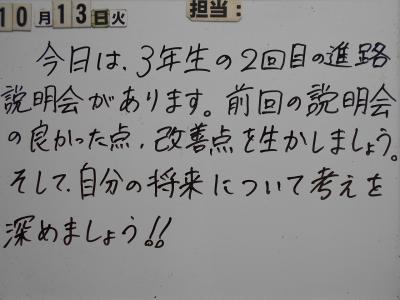 10月13日火 担当:
今日は、3年生の2回目の進路
説明会があります。前回の説明会
の良かった点、改善点を生かしましょう。
そして、自分の将来について考えを
深めましょう!!